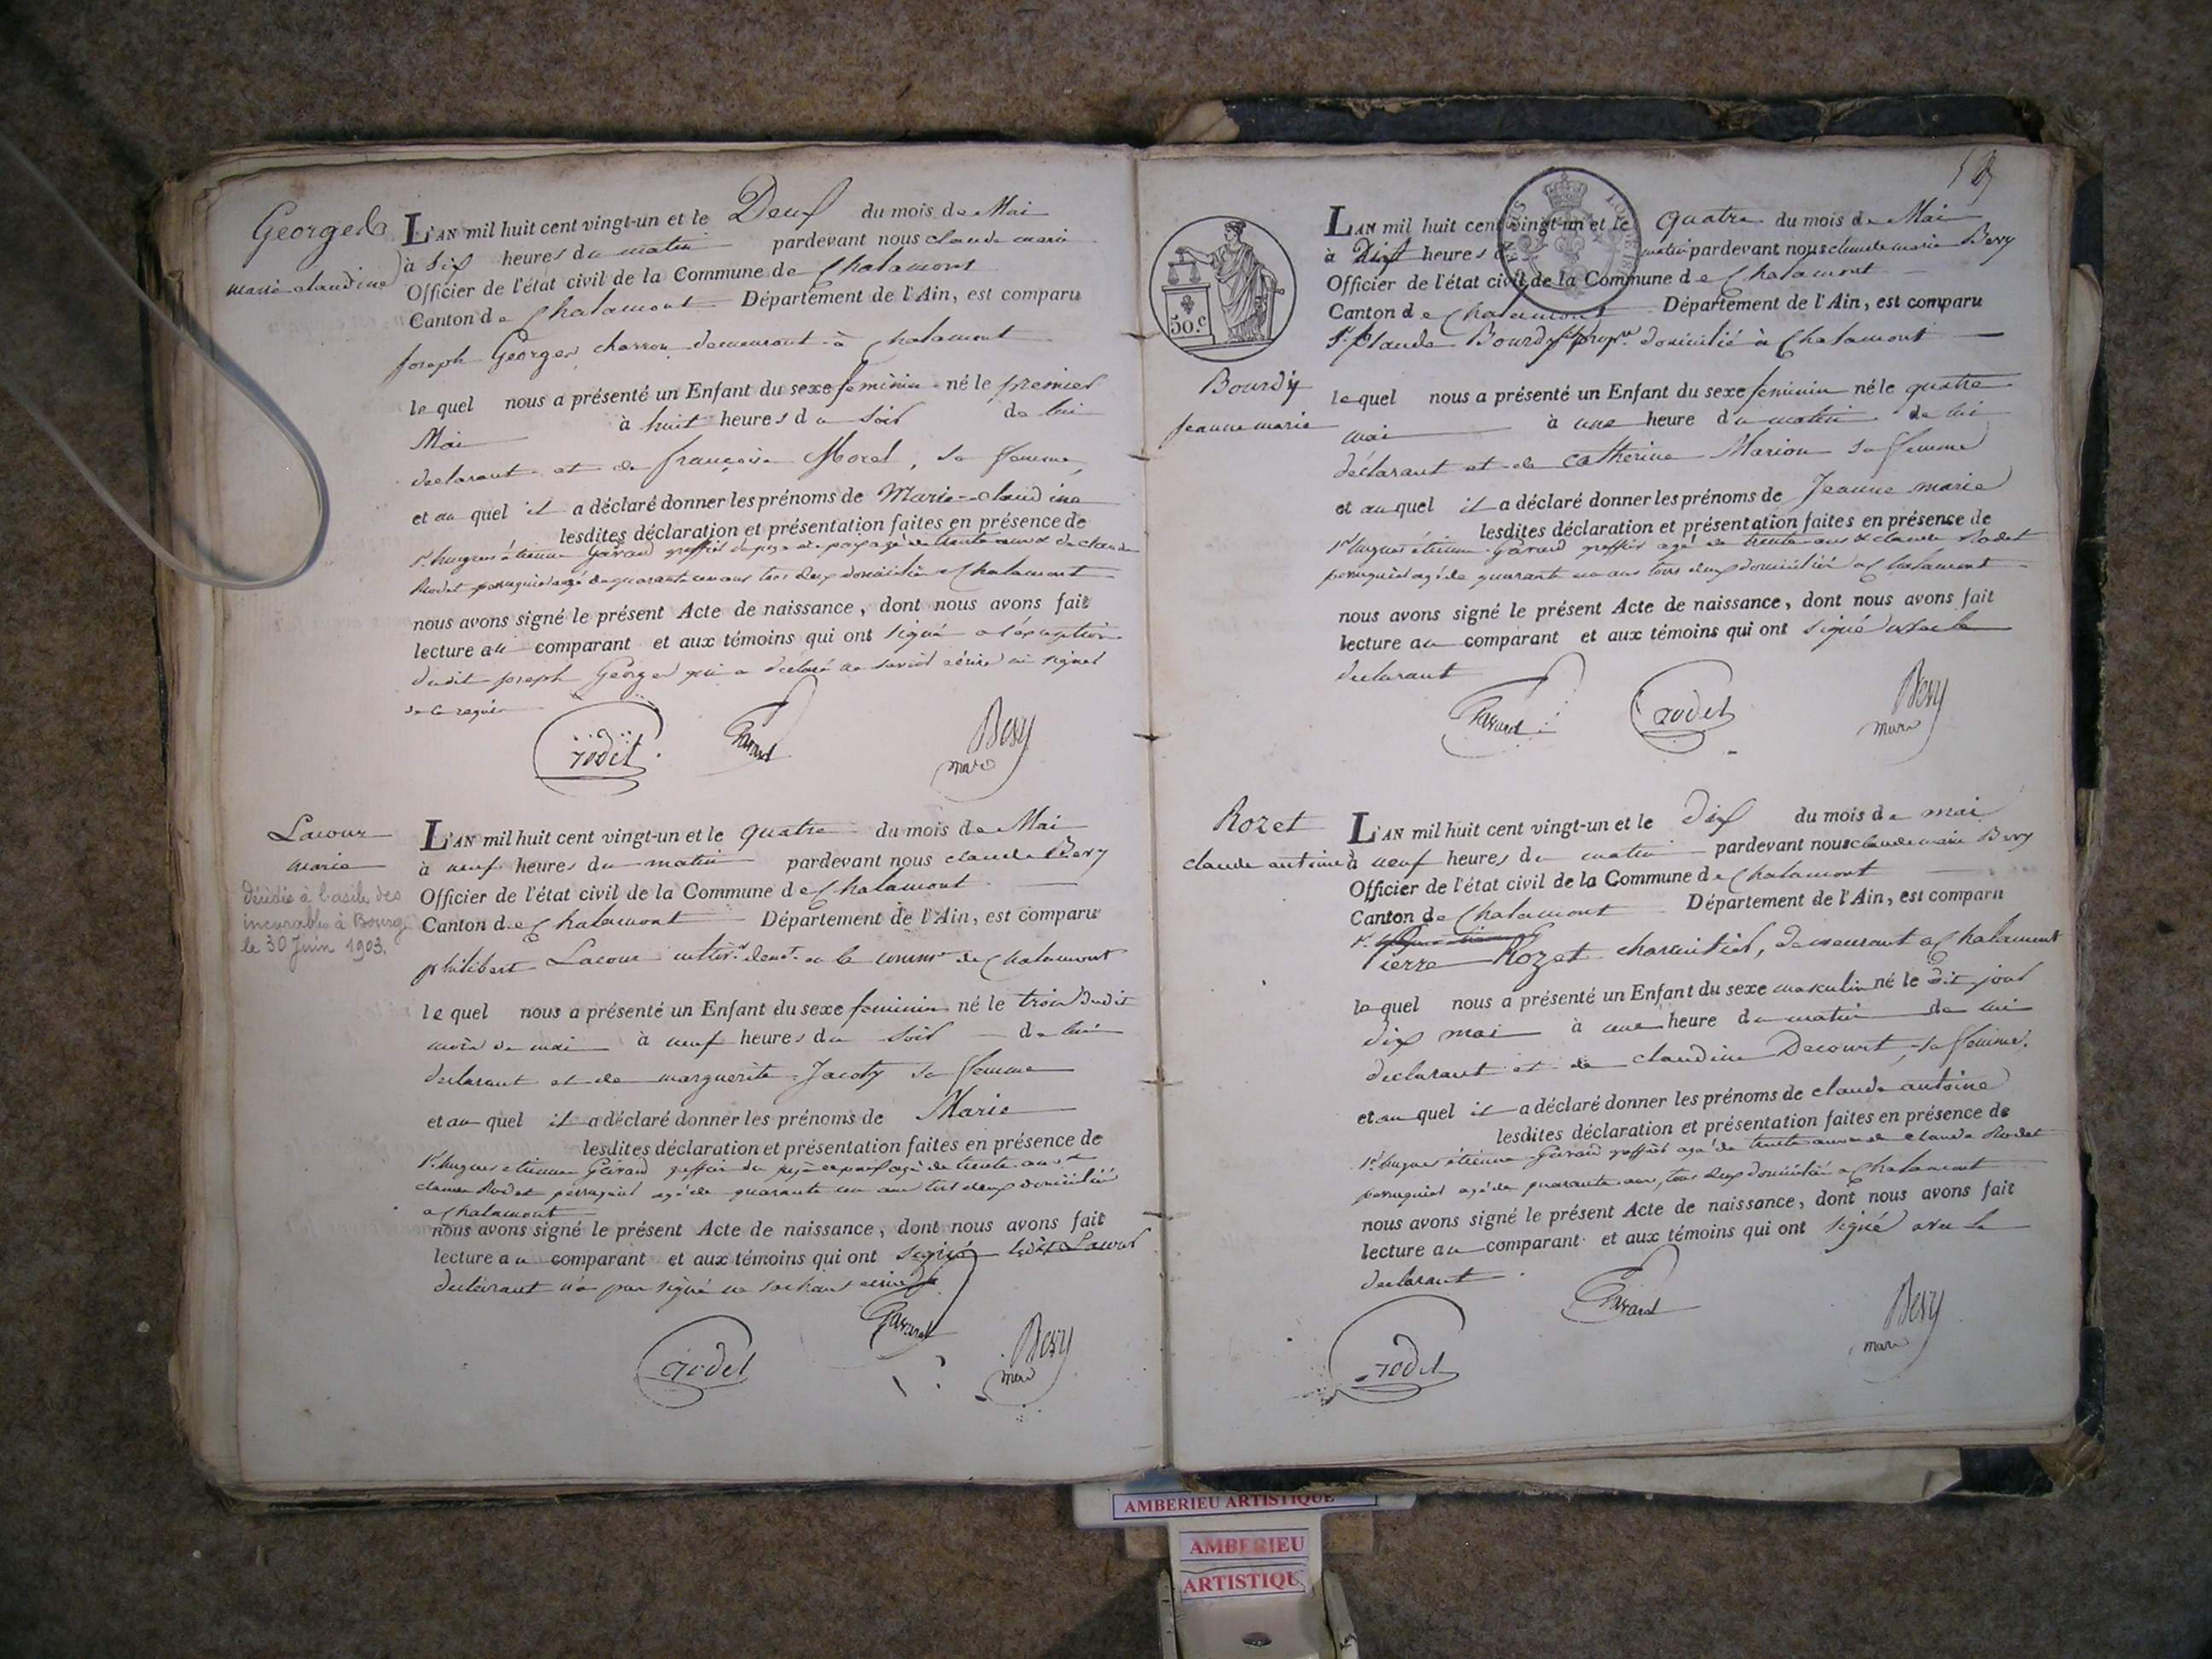 Georges
marie claudine
L'AN mil huit cent vingt-un et le Deux du mois de Mai
à six heures du matin pardevant nous claude marie
Officier de l'état civil de la Commune de Chalamont
Canton de Chalamont Département de l'Ain, est comparu
joseph Georges charron demeurant à Chalamont
le quel nous a présenté un Enfant du sexe feminin né le premier
Mai à huit heures du soir de lui
declarant et de françoise Morel, sa femme,
et au quel il a déclaré donner les prénoms de Marie-claudine
lesdites déclaration et présentation faites en présence de
Sr. hugues étienne Gavand greffier de paix agé de trente ans & de claude
Rodet perruquier agé de quarante un ans tous deux domiciliés a Chalamont
nous avons signé le présent Acte de naissance, dont nous avons fait
lecture au comparant et aux témoins qui ont signé a l'exception
dudit joseph Georges qui a declaré ne savoir écrire ni signer
de ce requis
rodet Gavand Bevy
maire
Lacour
marie
décédée à l'asile des
incurables à Bourg
le 30 Juin 1903.
L'AN mil huit cent vingt-un et le quatre du mois de Mai
à neuf heures du matin pardevant nous claude Bevy
Officier de l'état civil de la Commune de Chalamont
Canton de Chalamont Département de l'Ain, est comparu
philibert Lacour demt. en la comme de Chalamont
le quel nous a présenté un Enfant du sexe feminin né le trois dudit
mois de mai à neuf heures du soir de lui
declarant et de marguerite Jacoty sa femme
et au quel il a déclaré donner les prénoms de Marie
lesdites déclaration et présentation faites en présence de
Sr. hugues étienne Gavand greffier agé de trente ans et
claude Rodet perruquier agé de quarante un ans tous deux domiciliés
a Chalamont
nous avons signé le présent Acte de naissance, dont nous avons fait
lecture au comparant et aux témoins qui ont signé ledit Lacour
declarant n'a pas signé ne sachant écrire
rodet Gavand Bevy
maire
50.c
Bourdy
jeanne marie
L'AN mil huit cent vingt-un et le quatre du mois de Mai
à Dix heures du matin pardevant nous claude marie Bevy
Officier de l'état civil de la Commune de Chalamont
Canton de Chalamont Département de l'Ain, est comparu
Sr. Claude Bourdy domicilié à Chalamont
le quel nous a présenté un Enfant du sexe feminin né le quatre
mai à une heure du matin de lui
déclarant et de catherine Marion sa femme
et au quel il a déclaré donner les prénoms de Jeanne marie
lesdites déclaration et présentation faites en présence de
Sr hugues étienne Gavand greffier agé de trente ans & claude Rodet
perruquier agé de quarante un ans tous deux domiciliés a Chalamont
nous avons signé le présent Acte de naissance, dont nous avons fait
lecture au comparant et aux témoins qui ont signé avec le
declarant
Gavand rodet Bevy
maire
Rozet
claude antoine
L'AN mil huit cent vingt-un et le dix du mois de mai
à neuf heures du matin pardevant nous claude marie Bevy
Officier de l'état civil de la Commune de Chalamont
Canton de Chalamont Département de l'Ain, est comparu
Sr.
Pierre Rozet charcutier, demeurant a Chalamont
le quel nous a présenté un Enfant du sexe masculin né le dit jour
dix mai à une heure du matin de lui
declarant et de claudine Decourt, sa femme.
et au quel il a déclaré donner les prénoms de claude antoine
lesdites déclaration et présentation faites en présence de
Sr hugues étienne Gavand greffier agé de trente ans et de claude Rodet
perruquier agé de quarante ans, tous deux domiciliés a Chalamont
nous avons signé le présent Acte de naissance, dont nous avons fait
lecture au comparant et aux témoins qui ont signé avec le
declarant
rodet Gavand Bevy
maire
AMBERIEU ARTISTIQUE
AMBERIEU
ARTISTIQU